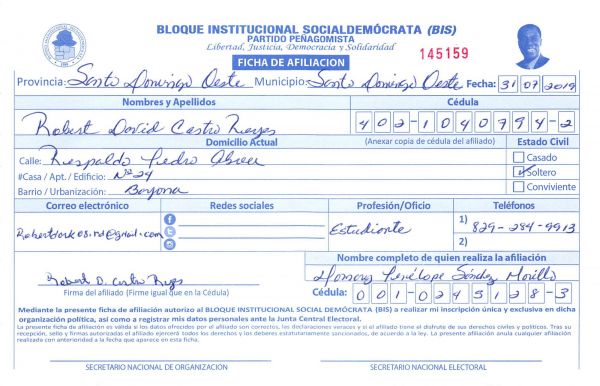 BLOQUE INSTITUCIONAL SOCIALDEMÓCRATA (BIS)
PARTIDO PEÑAGOMISTA
Libertad, Justicia, Democracia y Solidaridad
FICHA DE AFILIACION
145159
Provincia: Santo Domingo Oeste Municipio: Santo Domingo Oeste Fecha: 31 07 2019
Nombres y Apellidos Cédula
Robert David Castro Reyes 402-1040794-2
Domicilio Actual (Anexar copia de cédula del afiliado) Estado Civil
Calle: Respaldo Pedro Abreu Casado
#Casa / Apt. / Edificio: Nº 24 Soltero
Barrio / Urbanización: Bayona Conviviente
Correo electrónico Redes sociales Profesión/Oficio Teléfonos
Estudiante 1) 829-284-9913
2)
Nombre completo de quien realiza la afiliación
Robert D. Castro Reyes Penélope Sández Morillo
Firma del afiliado (Firme igual que en la Cédula) Cédula: 001-0245128-3
Mediante la presente ficha de afiliación autorizo al BLOQUE INSTITUCIONAL SOCIAL DEMÓCRATA (BIS) a realizar mi inscripción única y exclusiva en dicha
organización política, así como a registrar mis datos personales ante la Junta Central Electoral.
La presente ficha de afiliación es válida si los datos ofrecidos por el afiliado son correctos, las declaraciones veraces y si el afiliado tiene el disfrute de sus derechos civiles y políticos. Tras su
recepción, sello y firmas autorizadas el afiliado ejercerá todos los derechos y los deberes estatutariamente sancionados, de acuerdo a la ley. La presente afiliación anula cualquier afiliación
realizada con anterioridad a la fecha que aparece en esta ficha.
SECRETARIO NACIONAL DE ORGANIZACIÓN SECRETARIO NACIONAL ELECTORAL